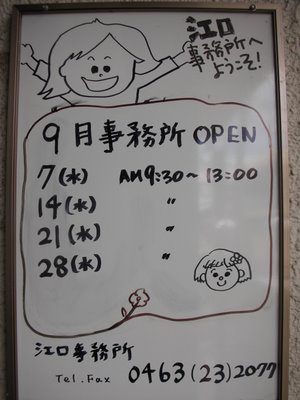 江口
事務所へ
ようこそ!
9月事務所 OPEN
7(水) AM9:30~13:00
14(水) 〃
21(水) 〃
28(水) 〃
江口事務所
Tel.Fax 0463(23)2077